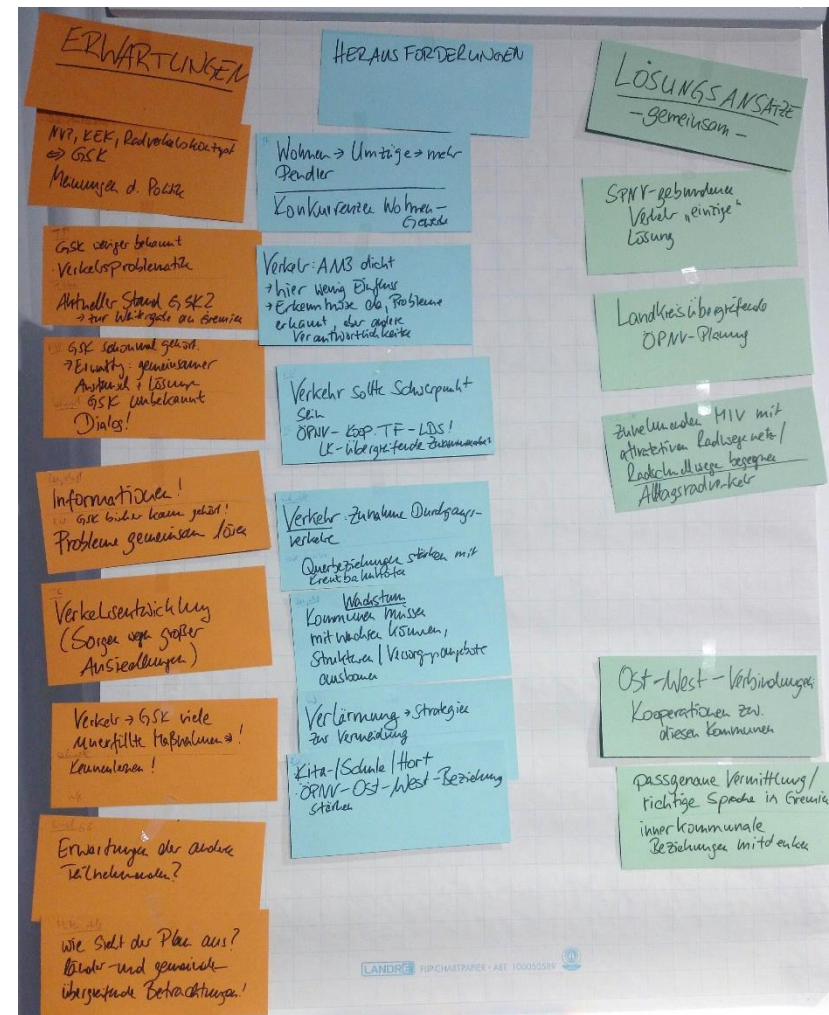 ERWARTUNGEN
NVP, KEK, Radverkehrskonzept
⇔ GSK
Meinungen d. Politik
GSK weniger bekannt
· Verkehrsproblematik
Aktueller Stand GSK2
→ zur Weitergabe an Gremien
GSK schonmal gehört.
→ Erwartg: gemeinsamer
Austausch + Lösung
GSK unbekannt
Dialog!
Informationen!
GSK bisher kaum gehört!
Probleme gemeinsam lösen
Verkehrsentwicklung
(Sorgen wegen großer
Ansiedlungen)
Verkehr → GSK viele
unerfüllte Maßnahmen!
Kennenlernen!
Erwartungen der andere
Teilnehmenden?
wie sieht der Plan aus?
länder- und gemeinde-
übergreifende Betrachtungen!
HERAUSFORDERUNGEN
Wohnen → Umzüge → mehr
Pendler
Konkurrenzen Wohnen -
Gewerbe
Verkehr: A113 dicht
→ hier wenig Einfluss
→ Erkenntnisse da, Probleme
erkannt, aber andere
Verantwortlichkeiten
Verkehr sollte Schwerpunkt
sein
ÖPNV - Koop. TF - LDS!
LK-übergreifende Zusammenarbeit
Verkehr: Zunahme Durchgangs-
verkehre
Querbeziehungen stärken mit
Kreuzbahnhöfen
Wachstum
Kommunen müssen
mitwachsen können,
Strukturen / Versorgungsangebote
ausbauen
Verlärmung → Strategien
zur Vermeidung
Kita-/Schule/Hort
ÖPNV - Ost-West-Beziehung
stärken
LÖSUNGSANSÄTZE
- gemeinsam -
SPNV-gebundener
Verkehr "einzige"
Lösung
Landkreisübergreifende
ÖPNV-Planung
Zunehmenden MIV mit
attraktiven Radwegenetz/
Radschnellwege begegnen
Alltagsradverkehr
Ost-West-Verbindungen
Kooperationen zw.
diesen Kommunen
passgenaue Vermittlung/
richtige Sprache in Gremien
innerkommunale
Beziehungen mitdenken
LANDRÉ FLIPCHARTPAPIER · ART. 100050589